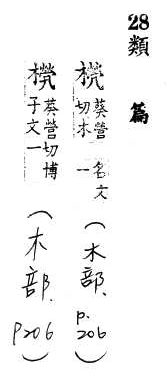 28類 篇
橩 葵營切木名文一 (木部. p.206)
橩 葵營切博子文一 (木部. p206)